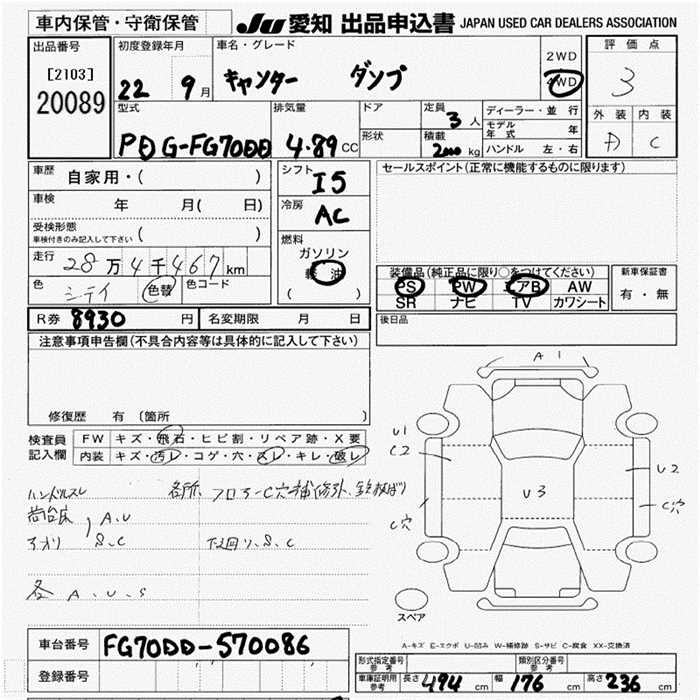 車内保管・守衛保管 JU 愛知 出品申込書 JAPAN USED CAR DEALERS ASSOCIATION
出品番号 初度登録年月 車名・グレード 2WD 評価点
[2103] 22 9月 キャンター ダンプ 4WD 3
20089 型式 排気量 ドア 定員 3人 ディーラー・並行 外装 内装
PDG-FG70DD 4.89CC 形状 積載 2000kg モデル年式 年 D C
ハンドル 左・右
車歴 自家用・( ) シフト I5 セールスポイント(正常に機能するものに限ります)
車検 年 月( 日) 冷房 AC
受検形態
車検付きのみ記入して下さい ( )
燃料
走行 28万4千467km ガソリン
軽油
( )
装備品(純正品に限り○をつけてください) 新車保証書
色 シテイ 色替 色コード PS PW エアB AW 有・無
SR ナビ TV カワシート
R券 8930円 名変期限 月 日 後日品
注意事項申告欄(不具合内容等は具体的に記入して下さい)
修復歴 有 (箇所 )
検査員 FW キズ・飛石・ヒビ割・リペア跡・X要
記入欄 内装 キズ・汚レ・コゲ・穴・スレ・キレ・破レ
ハンドルスレ 各所、フロアーC穴補修外、
荷台床 A、U
アオリ S、C 下廻り、S、C
各 A、U、S
A1
U1
C2
U2
U3
C穴
C穴
スペア
A-キズ E-エクボ U-凹み W-補修跡 S-サビ C-腐食 XX-交換済
車台番号 FG70DD-570086
登録番号
形式指定番号 参考 類別区分番号 参考
車庫証明用 参考 長さ 494cm 幅 176cm 高さ 236cm